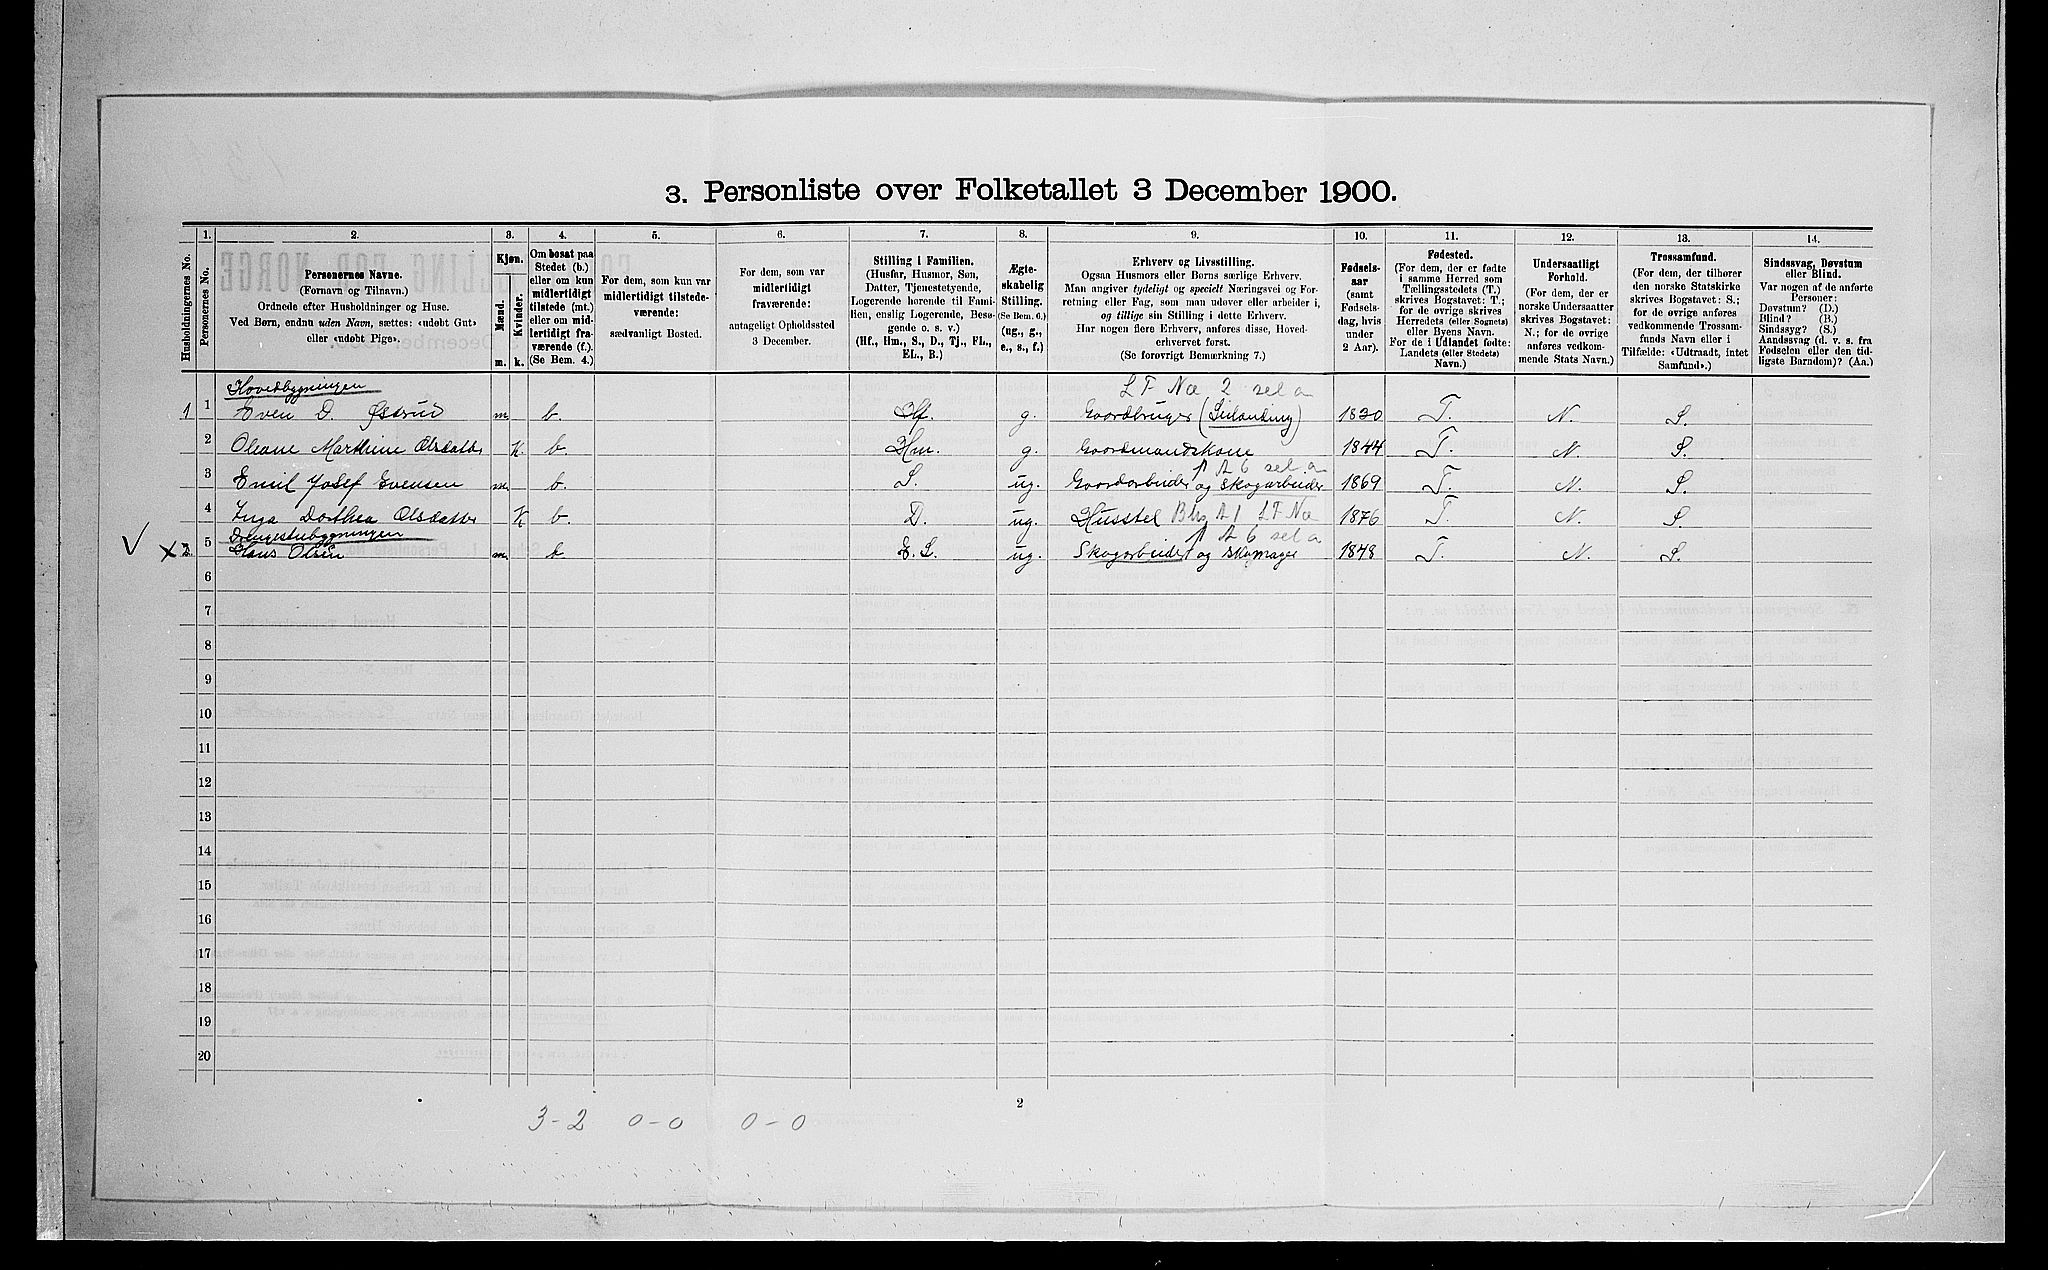 3. Personliste over Folketallet 3 December 1900.
1. 2. 3. 4. 5. 6. 7. 8. 9. 10. 11. 12. 13. 14.
Husholdningernes No.
Personernes No.
Personernes Navne.
(Fornavn og Tilnavn.)
Ordnede efter Husholdninger og Huse.
Ved Børn, endnu uden Navn, sættes: «udøbt Gut»
eller «udøbt Pige».
Kjøn.
Mænd.
Kvinder.
m. k.
Om bosat paa
Stedet (b.)
eller om kun
midlertidigt
tilstede (mt.)
eller om mid-
lertidigt fra-
værende (f.).
(Se Bem. 4.)
For dem, som kun var
midlertidigt tilstede-
værende:
sædvanligt Bosted.
For dem, som var
midlertidigt
fraværende:
antageligt Opholdssted
3 December.
Stilling i Familien.
(Husfar, Husmor, Søn,
Datter, Tjenestetyende,
Logerende hørende til Fami-
lien, enslig Logerende, Besø-
gende o. s. v.)
(Hf., Hm., S., D., Tj., FL.,
EL., B.)
Ægte-
skabelig
Stilling.
(Se Bem. 6.)
(ug., g.,
e., s., f.)
Erhverv og Livsstilling.
Ogsaa Husmors eller Børns særlige Erhverv.
Man angiver tydeligt og specielt Næringsvei og For-
retning eller Fag, som man udøver eller arbeider i,
og tillige sin Stilling i dette Erhverv.
Har nogen flere Erhverv, anføres disse, Hoved-
erhvervet først.
(Se forøvrigt Bemærkning 7.)
Fødsels-
aar
(samt
Fødsels-
dag, hvis
under
2 Aar).
Fødested.
(For dem, der er fødte
i samme Herred som
Tællingsstedets (T.)
skrives Bogstavet: T.;
for de øvrige skrives
Herredets (eller Sognets)
eller Byens Navn.
For de i Udlandet fødte:
Landets (eller Stedets)
Navn.)
Undersaatligt
Forhold.
(For dem, der er
norske Undersaatter
skrives Bogstavet:
N.; for de øvrige
anføres vedkom-
mende Stats Navn.)
Trossamfund.
(For dem, der tilhører
den norske Statskirke
skrives Bogstavet: S.;
for de øvrige anføres
vedkommende Trossam-
funds Navn eller i
Tilfælde: «Udtraadt, intet
Samfund».)
Sindssvag, Døvstum
eller Blind.
Var nogen af de anførte
Personer:
Døvstum? (D.)
Blind? (B.)
Sindssyg? (S.)
Aandssvag (d. v. s. fra
Fødselen eller den tid-
ligste Barndom)? (Aa.)
Hovedbygningen LF Næ 2 sel a
1 1 Even D. Østrud m. b. Hf. g. Gaardbruger (Selvstændig) 1830 T. N. S.
2 Oleane Marthine Olsdatter k. b. Hm. g. Gaardmandskone 1844 T. N. S.
A 6 sel a
3 Emil Josef Evensen m. b. S. ug. Gaardarbeider og Skogarbeider 1869 T. N. S.
4 Inga Dorthea Olsdatter K b. D. ug. Husstel LF Næ 1876 T. N. S.
Drengestubygningen A 6 sel a
V X 2 5 Hans Olsen m. b. E. L. ug. Skogarbeider og Skomager 1848 T. N. S.
6
7
8
9
10
11
12
13
14
15
16
17
18
19
20
2
3-2 0-0 0-0